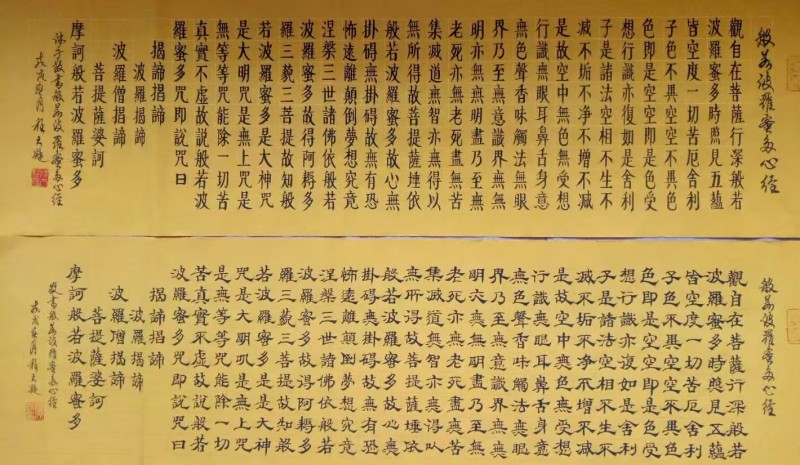 般若波羅蜜多心经
觀自在菩薩行深般若
波羅蜜多時照見五蘊
皆空度一切苦厄舍利
子色不異空空不異色
色即是空空即是色受
想行識亦復如是舍利
子是諸法空相不生不
減不垢不净不增不减
是故空中無色無受想
行識無眼耳鼻舌身意
無色聲香味觸法無眼
界乃至無意識界無無
明亦無無明盡乃至無
老死亦無老死盡無苦
集滅道無智亦無得以
無所得故菩提薩埵依
般若波羅蜜多故心無
掛碍無掛碍故無有恐
怖遠離顛倒夢想究竟
涅槃三世諸佛依般若
波羅蜜多故得阿耨多
羅三藐三菩提故知般
若波羅蜜多是大神咒
是大明咒是無上咒是
無等等咒能除一切苦
真實不虛故說般若波
羅蜜多咒即說咒曰
揭諦揭諦
波羅揭諦
波羅僧揭諦
菩提薩婆訶
摩訶般若波羅蜜多
敬書般若波羅蜜多心经
般若波羅蜜多心经
觀自在菩薩行深般若
波羅蜜多時照見五蘊
皆空度一切苦厄舍利
子色不異空空不異色
色即是空空即是色受
想行識亦復如是舍利
子是諸法空相不生不
滅不垢不净不增不减
是故空中無色無受想
行識無眼耳鼻舌身意
無色聲香味觸法無眼
界乃至無意識界無無
明亦無無明盡乃至無
老死亦無老死盡無苦
集滅道無智亦無得以
無所得故菩提薩埵依
般若波羅蜜多故心無
掛碍無掛碍故無有恐
怖遠離顛倒夢想究竟
涅槃三世諸佛依般若
波羅蜜多故得阿耨多
羅三藐三菩提故知般
若波羅蜜多是大神
咒是大明咒是無上咒
是無等等咒能除一切
苦真實不虛故說般若
波羅蜜多咒即說咒曰
揭諦揭諦
波羅揭諦
波羅僧揭諦
菩提薩婆訶
摩訶般若波羅蜜多
敬書般若波羅蜜多心经